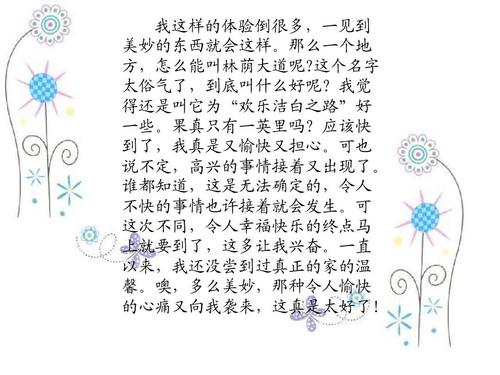 我这样的体验倒很多，一见到
美妙的东西就会这样。那么一个地
方，怎么能叫林荫大道呢?这个名字
太俗气了，到底叫什么好呢？我觉
得还是叫它为“欢乐洁白之路”好
一些。果真只有一英里吗？应该快
到了，我真是又愉快又担心。可也
说不定，高兴的事情接着又出现了。
谁都知道，这是无法确定的，令人
不快的事情也许接着就会发生。可
这次不同，令人幸福快乐的终点马
上就要到了，这多让我兴奋。一直
以来，我还没尝到过真正的家的温
馨。噢，多么美妙，那种令人愉快
的心痛又向我袭来，这真是太好了！